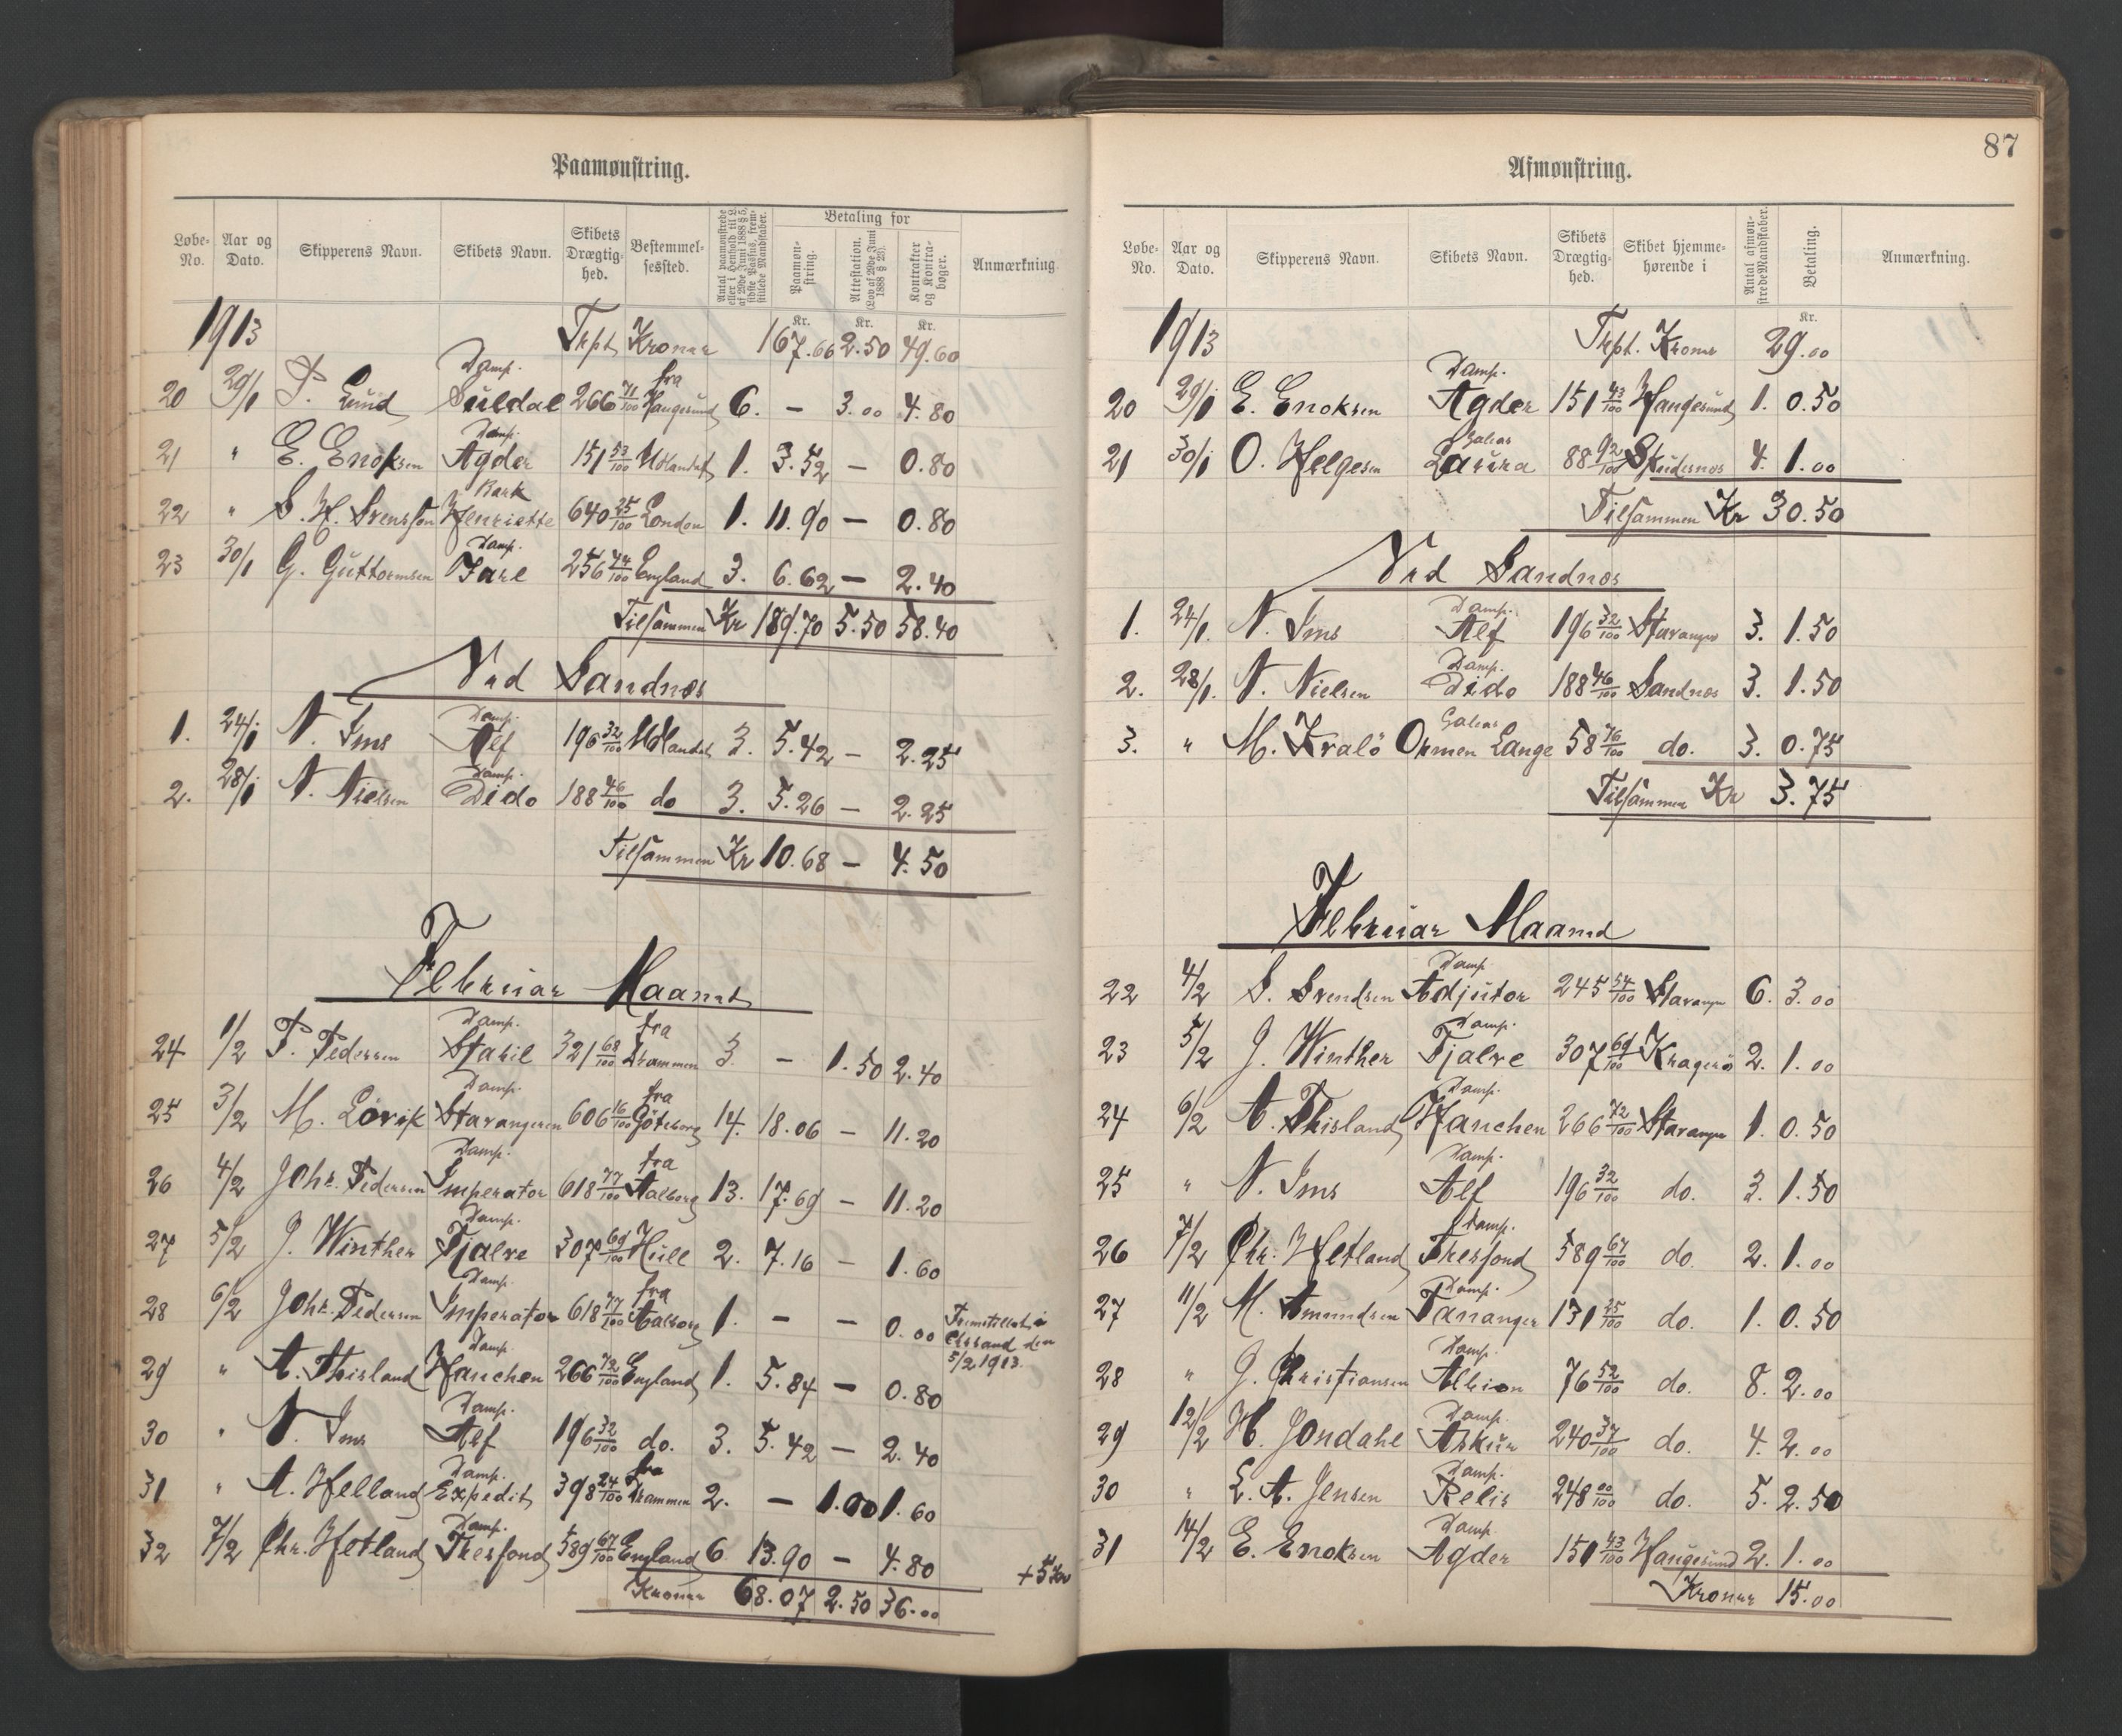 Paamønstring.
Løbe-No. Aar og Dato. Skipperens Navn. Skibets Navn. Skibets Drægtighed. Bestemmelsessted. Antal paamønstrede eller i Henhold til L. af 29de Juni 1888 § 5, sidste Passus, fremstillede Mandskaber. Betaling for Paamønstring. Attestation. (Lov af 29de Juni 1888 § 23). Kontrakter og Kontrabøger. Anmærkning.
Kr. Kr. Kr.
1913 Trpt. Kroner 167.66 2.50 49.60
20 29/1 P. Lund Damp. Suldal 266 71/100 fra Haugesund 6. — 3.00 4.80
21 " E. Enoksen Damp. Agder 151 53/100 Udlandet 1. 3.52 — 0.80
22 " S. H. Svensson Bark Henriette 640 25/100 London 1. 11.90 — 0.80
23 30/1 G. Guttormsen Damp. Jarl 256 44/100 England 3. 6.62 — 2.40
Tilsammen Kr 189.70 5.50 58.40
Ved Sandnes
1. 24/1 N. Ims Damp. Alf 196 32/100 Udlandet 3. 5.42 — 2.25
2. 28/1 N. Nielsen Damp. Dido 188 46/100 do 3. 5.26 — 2.25
Tilsammen Kr 10.68 — 4.50
Februar Maaned
24 1/2 P. Pedersen Damp. Stabil 321 68/100 fra Drammen 3. — 1.50 2.40
25 3/2 M. Lövik Damp. Stavangeren 606 16/100 fra Göteborg 14. 18.06 — 11.20
26 4/2 Johs. Pedersen Damp. Imperator 618 77/100 fra Aalborg 13. 17.69 — 11.20
27 5/2 J. Winther Damp. Tjalve 307 69/100 Hull 2. 7.16 — 1.60
28 6/2 Johs. Pedersen Damp. Imperator 618 77/100 fra Aalborg 1. — — 0.00 Fremstillet i Ekssund den 5/2 1913.
29 " A. Thisland Damp. Hanchen 266 72/100 England 1. 5.84 — 0.80
30 " N. Ims Damp. Alf 196 32/100 do. 3. 5.42 — 2.40
31 " A. Helland Damp. Expedit 398 24/100 fra Drammen 2. — 1.00 1.60
32 7/2 Chr. Hetland Damp. Thesfond 589 67/100 England 6 13.90 — 4.80
Kroner 68.07 2.50 36.00
87
Afmønstring.
Løbe-No. Aar og Dato. Skipperens Navn. Skibets Navn. Skibets Drægtighed. Skibet hjemmehørende i Antal afmønstrede Mandskaber. Betaling. Anmærkning.
Kr.
1913 Trpt. Kroner 29.00
20 29/1 E. Enoksen Damp. Agder 151 43/100 Haugesund 1. 0.50
21 30/1 O. Helgesen Galeas Laura 88 92/100 Skudesnes 4. 1.00
Tilsammen Kr 30.50
Ved Sandnes
1. 24/1. N. Ims Damp. Alf 196 32/100 Stavanger 3. 1.50
2. 28/1. N. Nielsen Damp. Dido 188 46/100 Sandnes 3. 1.50
3. " M. Kralö Galeas Ormen Lange 58 76/100 do. 3. 0.75
Tilsammen Kr 3.75
Februar Maaned
22 4/2 S. Svendsen Damp. Adjutor 245 54/100 Stavanger 6. 3.00
23 5/2 J. Winther Damp. Tjalve 307 69/100 Kragerö 2. 1.00
24 6/2 A. Thisland Damp. Hanchen 266 72/100 Stavanger 1. 0.50
25 " N. Ims Damp. Alf 196 32/100 do. 3. 1.50
26 7/2 Chr. Hetland Damp. Thesfond 589 67/100 do. 2. 1.00
27 11/2 M. Amundsen Damp. Tananger 131 25/100 do. 1. 0.50
28 " J. Christiansen Damp. Albion 76 52/100 do. 8. 2.00
29 12/2 H. Jondahl Damp. Askur 240 37/100 do. 4. 2.00
30 " L. A. Jensen Damp. Relis 248 00/100 do. 5. 2.50
31 14/2 E. Enoksen Damp. Agder 151 43/100 Haugesund 2. 1.00
Kroner 15.00